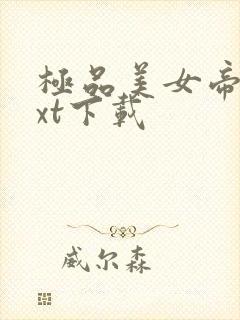 極品美女帝
xt下載
威尔森